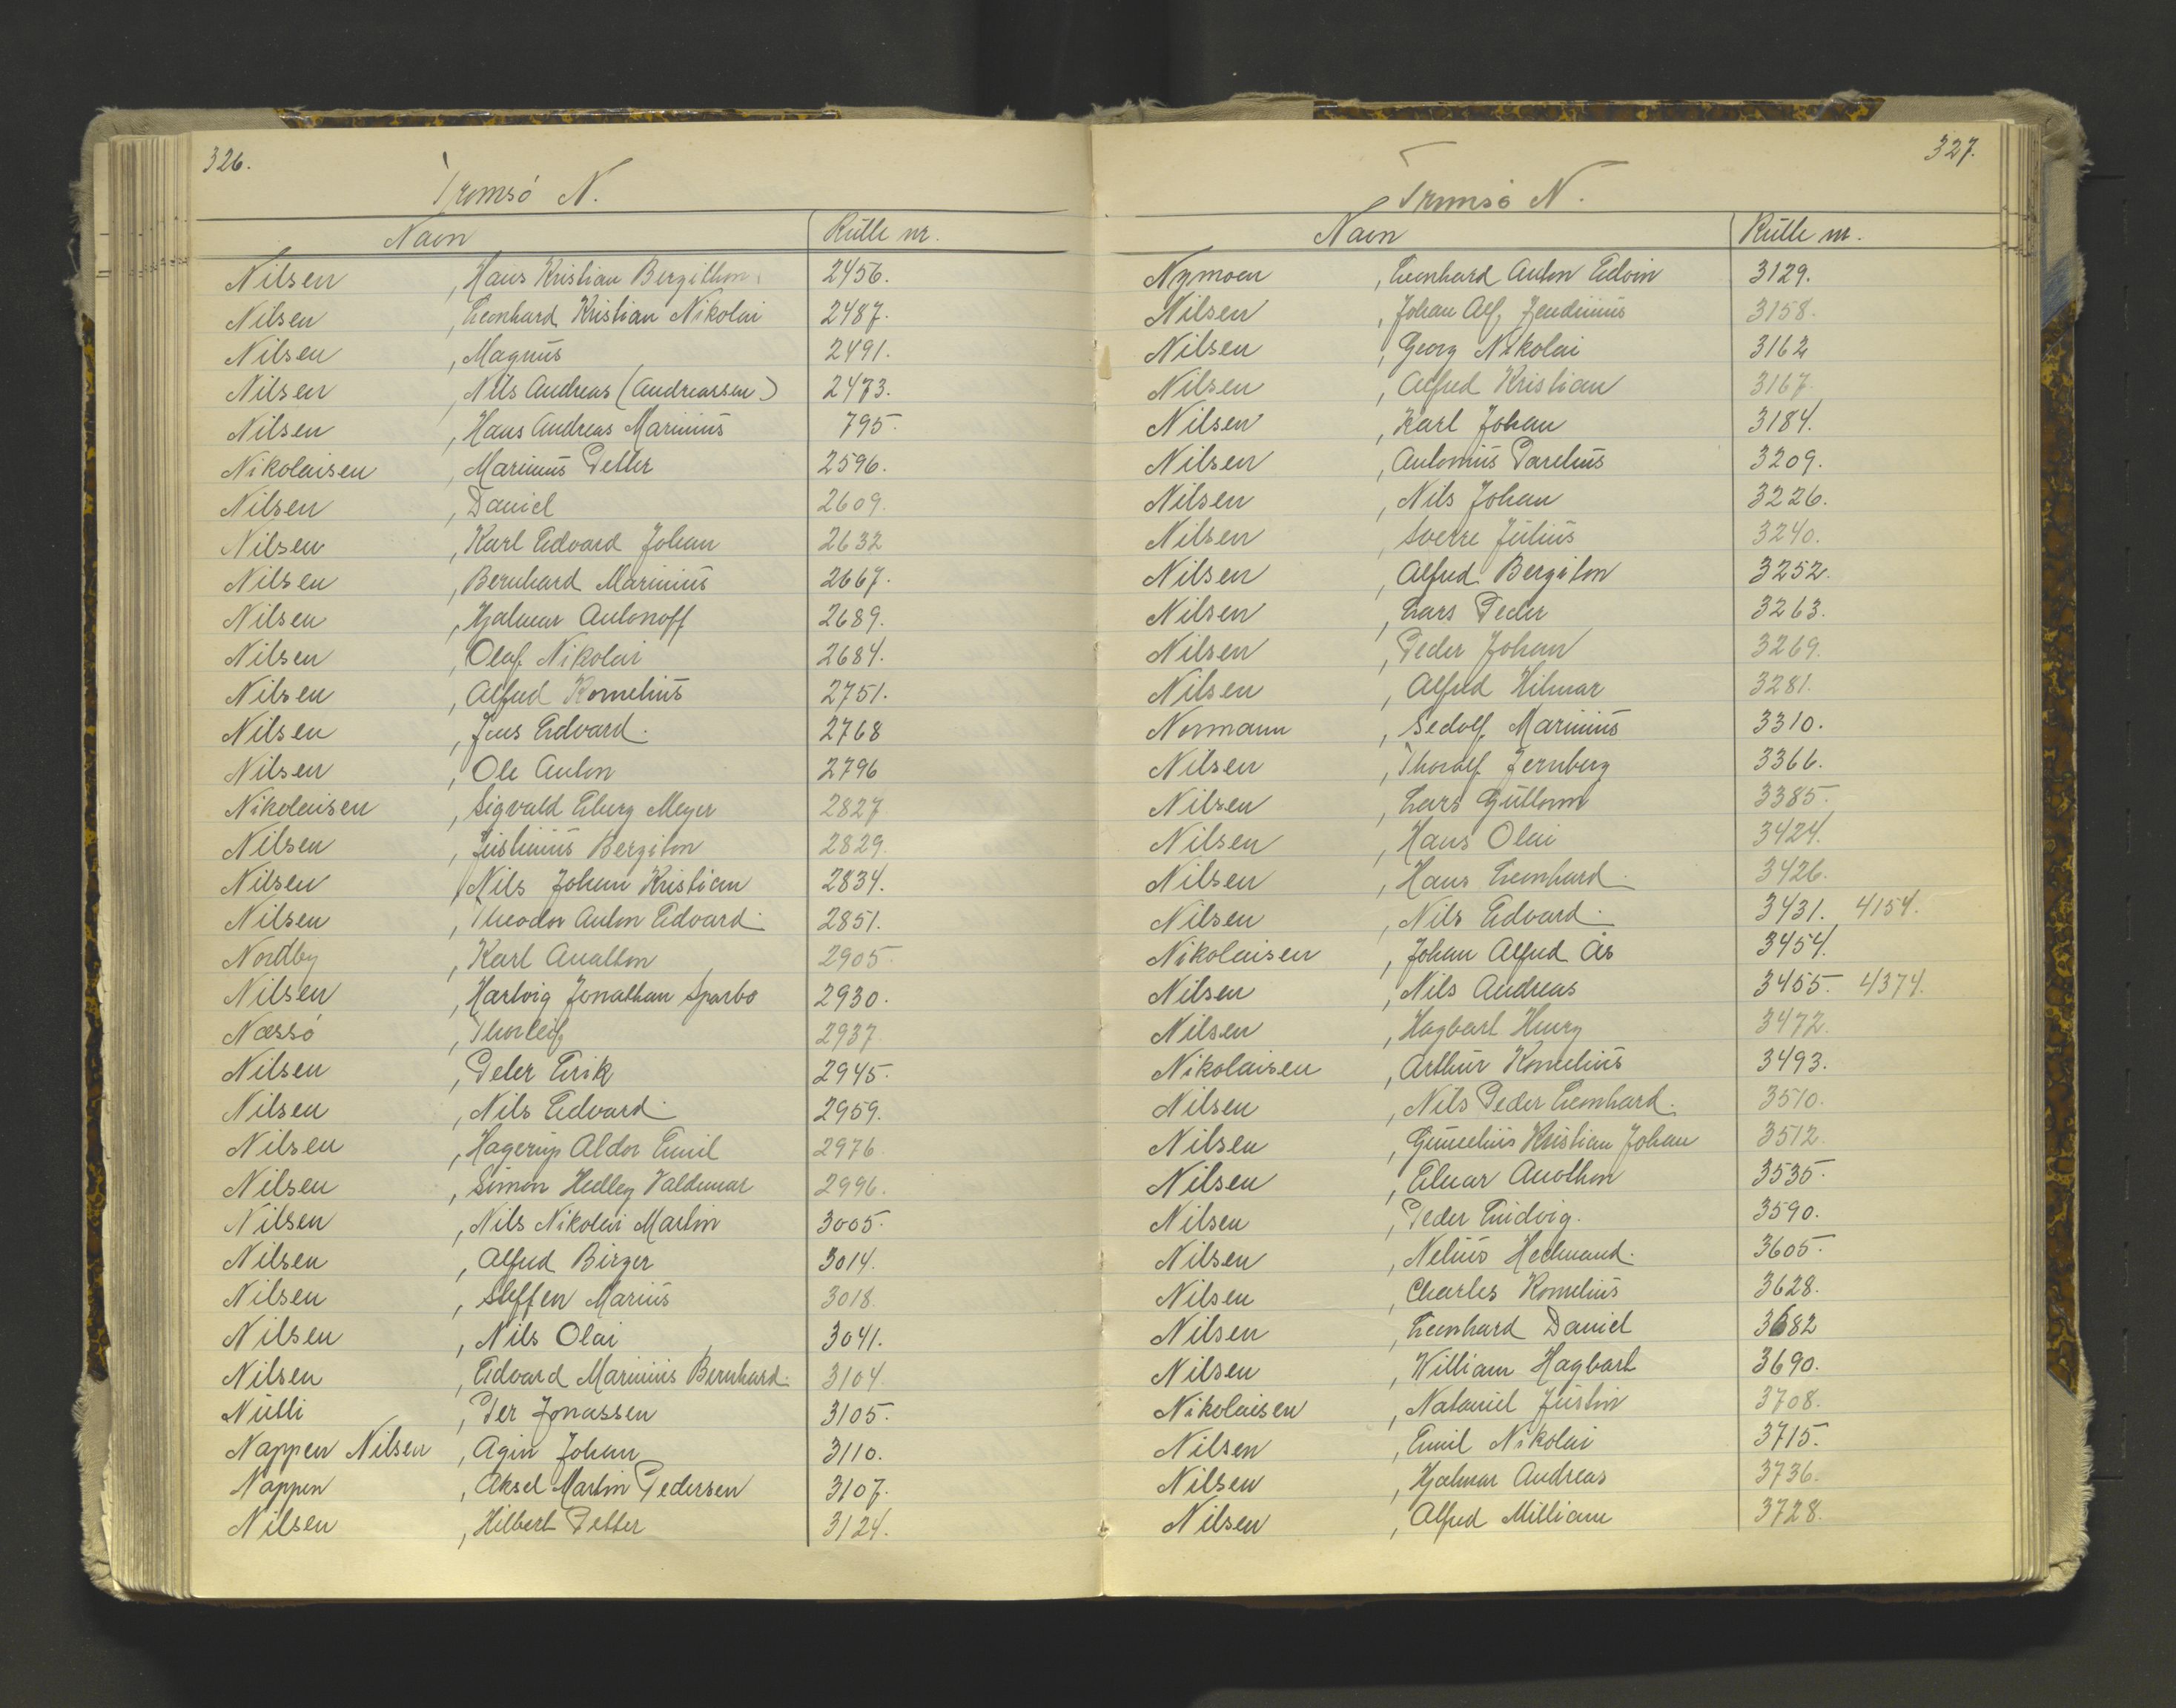 326.
Tromsö N.
Navn Rulle nr.
Nilsen , Hans Kristian Bergithon 2456.
Nilsen , Leonhard Kristian Nikolai 2487.
Nilsen , Magnus 2491.
Nilsen , Nils Andreas (Andreassen) 2473.
Nilsen , Hans Andreas Marinius 795.
Nikolaisen , Marinus Petter 2596.
Nilsen , Daniel 2609.
Nilsen , Karl Edvard Johan 2632
Nilsen , Bernhard Marinius 2667.
Nilsen , Hjalmar Antonoff 2689.
Nilsen , Olaf Nikolai 2684.
Nilsen , Alfred Kornelius 2751.
Nilsen , Jens Edvard. 2768
Nilsen , Ole Anton 2796
Nikolaisen , Sigvald Elberg Meyer 2827
Nilsen , Justinius Bergiton 2829.
Nilsen , Nils Johan Kristian 2834.
Nilsen , Theodor Anton Edvard. 2851.
Nordby , Karl Analthon 2905.
Nilsen , Hartvig Jonathan Sparbo 2930.
Næssö , Thorleif 2937
Nilsen , Peter Erik 2945.
Nilsen , Nils Edvard. 2959.
Nilsen , Hagerup Aldor Emil 2976
Nilsen , Simon Hedley Valdemar 2996.
Nilsen , Nils Nikolai Martin 3005.
Nilsen , Alfred Birger 3014.
Nilsen , Steffen Marius 3018.
Nilsen , Nils Olai 3041.
Nilsen , Edvard Marinius Bernhard. 3104
Nutti , Per Jonassen 3105.
Nappen Nilsen , Agin Johan 3110.
Nappen , Aksel Martin Pedersen 3107.
Nilsen , Hilbert Petter 3124.
327.
Tromsö N.
Navn Rulle nr.
Nymoen , Leonhard Anton Edvin 3129.
Nilsen , Johan Alf Jendinius 3158.
Nilsen , Georg Nikolai 3162
Nilsen , Alfred Kristian 3167.
Nilsen , Karl Johan 3184.
Nilsen , Antonius Parelius 3209.
Nilsen , Nils Johan 3226.
Nilsen , Sverre Julius 3240.
Nilsen , Alfred Bergiton 3252.
Nilsen , Lars Peder 3263.
Nilsen , Peder Johan 3269.
Nilsen , Alfred Hilmar 3281.
Normann , Sedolf Marinius 3310.
Nilsen , Thoralf Jernberg 3366.
Nilsen , Lars Guttorm 3385.
Nilsen , Hans Olai 3424.
Nilsen , Hans Leonhard. 3426.
Nilsen , Nils Edvard. 3431. 4154.
Nikolaisen , Johan Alfred Ås 3454.
Nilsen , Nils Andreas 3455. 4374.
Nilsen , Hagbart Henry 3472.
Nikolaisen , Arthur Kornelius 3493.
Nilsen , Nils Peder Leonhard. 3510.
Nilsen , Gunelius Kristian Johan 3512.
Nilsen , Elnar Anothon 3535.
Nilsen , Peder Ludvig. 3590.
Nilsen , Nelius Hedmand. 3605.
Nilsen , Charles Kornelius 3628.
Nilsen , Leonhard Daniel 3682
Nilsen , William Hagbart 3690.
Nikolaisen , Nataniel Justin 3708.
Nilsen , Emil Nikolai 3715.
Nilsen , Hjalmar Andreas 3736.
Nilsen , Alfred Milliam 3728.